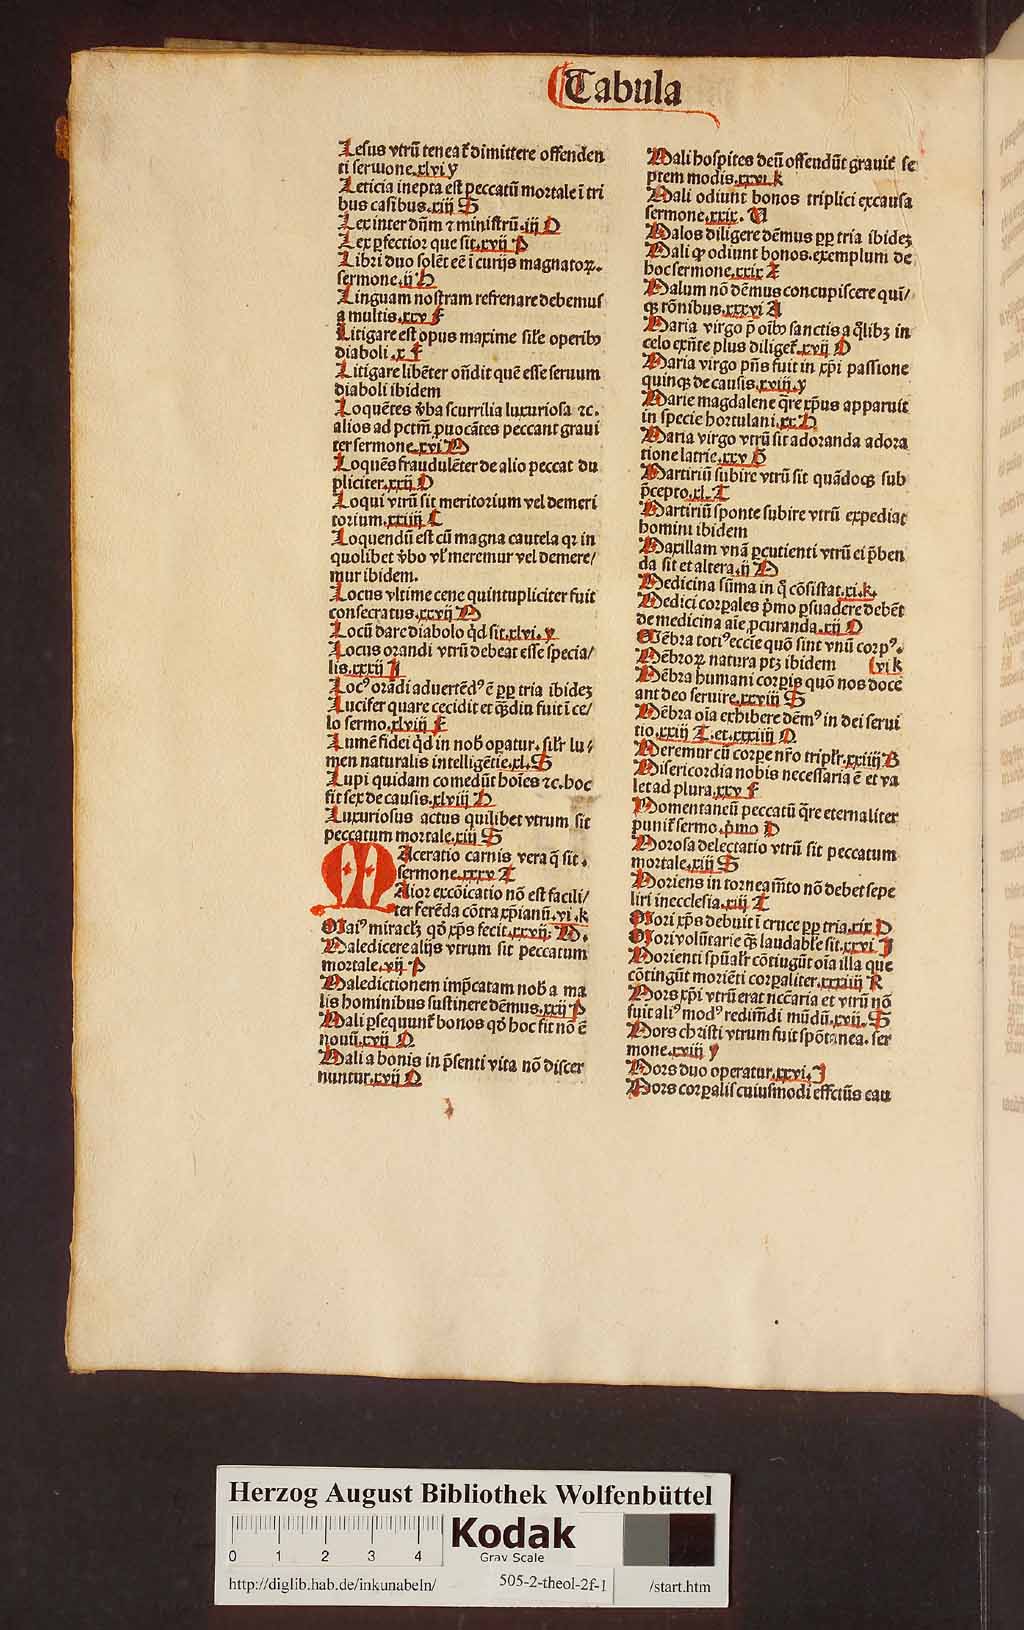 Tabula
Lesus vtrũ teneat̃ dimittere offenden
ti sermone.xlvi y
Leticia inepta est peccatũ mortale ĩ tri
bus casibus.xiij S
Lex inter dñm ⁊ ministrũ.iij O
Lex ꝑfectior que sit.xvij P
Libri duo solẽt eẽ ĩ curijs magnatoꝝ.
sermone.ij H
Linguam nostram refrenare debemus
a multis.xxv F
Litigare est opus maxime sil̃e operibꝰ
diaboli.x f
Litigare libẽter oñdit quẽ esse seruum
diaboli ibidem
Loquẽtes v̾ba scurrilia luxuriosa ⁊c.
alios ad pctm̃ ꝓuocãtes peccant graui
ter sermone.xvi M
Loquẽs fraudulẽter de alio peccat du
pliciter.xxij O
Loqui vtrũ sit meritorium vel demeri
torium.xxiiij C
Loquendũ est cũ magna cautela qꝛ in
quolibet v̾bo vl̃ meremur vel demere/
mur ibidem.
Locus vltime cene quintupliciter fuit
consecratus.xxvij M
Locũ dare diabolo qͥd sit.xlvi.y
Locus orandi vtrũ debeat esse specia/
lis.xxxij I
Locꝰ orãdi aduertẽdꝰ ẽ ꝓp tria ibidez
Lucifer quare cecidit et qͣ̃diu fuit ĩ ce/
lo sermo.xlviij E
Lumẽ fidei qͥd in nob̾ oꝑatur.sil̃r lu/
men naturalis intelligẽtie.xl.S
Lupi quidam comedũt hoĩes ⁊c.hoc
fit sex de causis.xlviij H
Luxuriosus actus quilibet vtrum sit
peccatum mortale.xiij S
Maceratio carnis vera q̃ sit.
sermone.xxxv T
Maior excõicatio nõ est facili/
ter ferẽda cõtra xp̃ianũ.vi.k
Maiꝰ miracl̃ꝫ qd̾ xp̃s fecit.xxvij.M.
Maledicere alijs vtrum sit peccatum
mortale.vij P
Maledictionem imp̃catam nob̾ a ma
lis hominibus sustinere dẽmus.xxij P
Mali ꝑsequunt̃ bonos qd̾ hoc fit nõ ẽ
nouũ.xvij O
Mali a bonis in p̃senti vita nõ discer
nuntur.xvij O
Mali hospites deũ offendũt grauit̾ se
ptem modis.xxvi k
Mali odiunt bonos triplici ex causa
sermone.xxix.
Malos diligere dẽmus ꝓp tria ibidez
Mali qd̾ odiunt bonos.exemplum de
hoc sermone.xxix
Malum nõ dẽmus concupiscere quĩ/
qꝫ rõnibus.xxxvi A
Maria virgo p̃ oĩbꝰ sanctis a qͥlibꝫ in
celo exñte plus diliget̃.xvij O
Maria virgo pñs fuit in xp̃i passione
quinqꝫ de causis.xviij.y
Marie magdalene q̃re xp̃us apparuit
in specie hortulani.xx H
Maria virgo vtrũ sit adoranda adora
tione latrie.xxv G
Martiriũ subire vtrũ sit quãdoqꝫ sub
p̃cepto.xl.T
Martiriũ sponte subire vtrũ expediat
homini ibidem
Maxillam vnã ꝑcutienti vtrũ ei p̃ben
da sit et altera.ij M
Medicina sũma in q̃ cõsistat.xi.k.
Medici corꝑales p̾mo ꝑsuadere debẽt
de medicina aĩe ꝓcuranda.xij O
Mẽbra totiꝰ eccĩe quõ sint vnũ corpꝰ.
Mẽbroꝝ natura ptꝫ ibidem (vi k
Mẽbra humani corꝑis quõ nos docẽ
ant deo seruire.xxviij S
Mẽbra oĩa exhibere dẽmꝰ in dei serui
tio.xxiij L.et.xxxiiij O
Meremur cũ corꝑe nr̃o tripl̃r.xxiiij B
Misericordia nobis necessaria ẽ et va
let ad plura.xxv f
Momentaneũ peccatũ q̃re eternaliter
punit̃ sermo.p̾mo D
Morosa delectatio vtrũ sit peccatum
mortale.xiij S
Moriens in torneam̃to nõ debet sepe
liri in ecclesia.xiij T
Mori xp̃s debuit ĩ cruce ꝓp tria.xix D
Mori volũtarie qͣ̃ laudable sit.xxvi I
Morienti spũal̃r cõtingũt oĩa illa que
cõtingũt moriẽti corꝑaliter.xxxiiij R
Mors xp̃i vtrũ erat nccãria et vtrũ nõ
fuit aliꝰ modꝰ redim̃di mũdũ.xvij.S
Mors christi vtrum fuit spõtanea.ser
mone.xviij y
Mors duo operatur.xxvi.I
Mors corꝑalis cuiusmodi effctũs cau
Herzog August Bibliothek Wolfenbüttel
0 1 2 3 4
Kodak
Gray Scale
http://diglib.hab.de/inkunabeln/
505-2-theol-2f-1
/start.htm